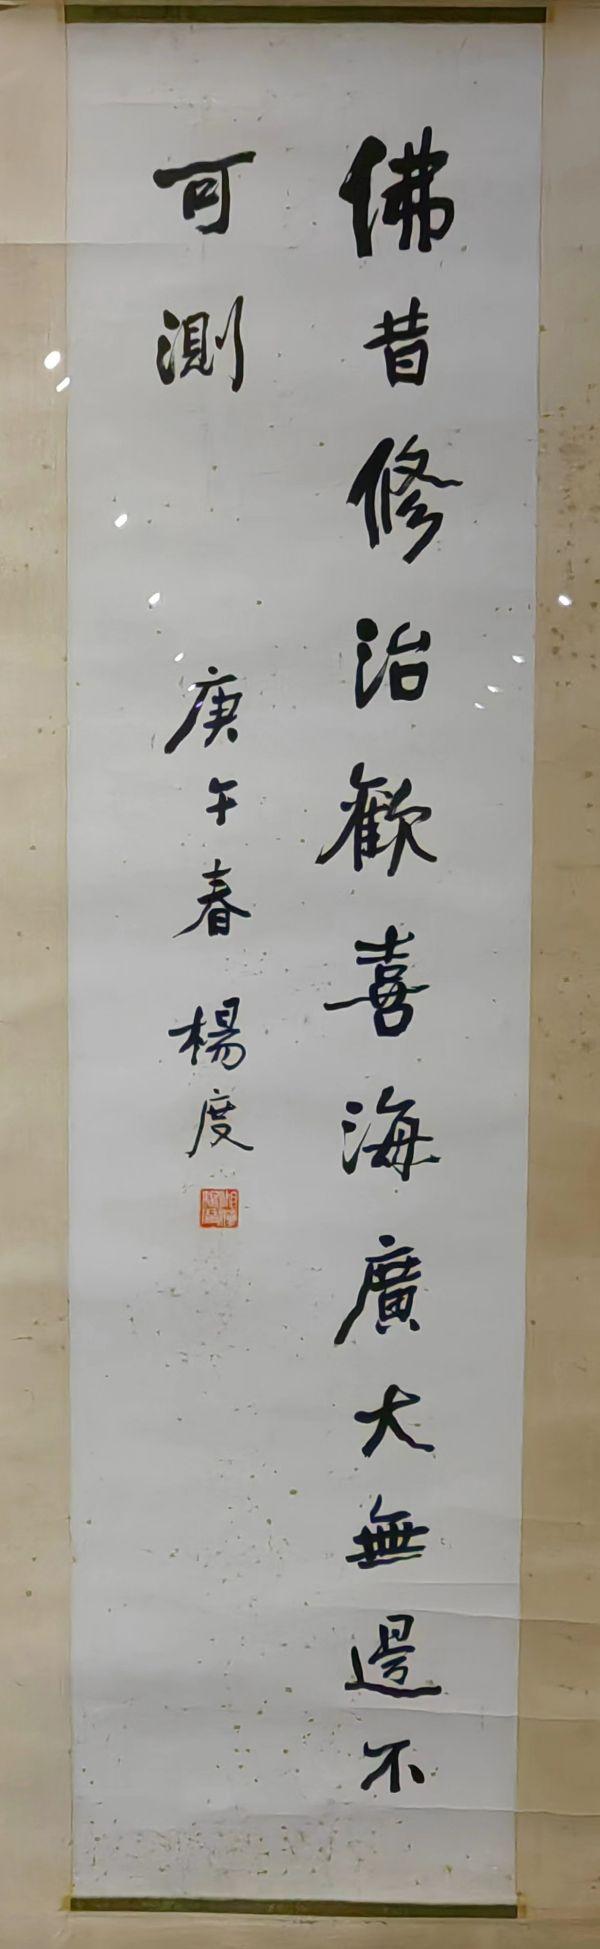 佛昔修治歡喜海廣大無邊不
可測
庚午春 楊度